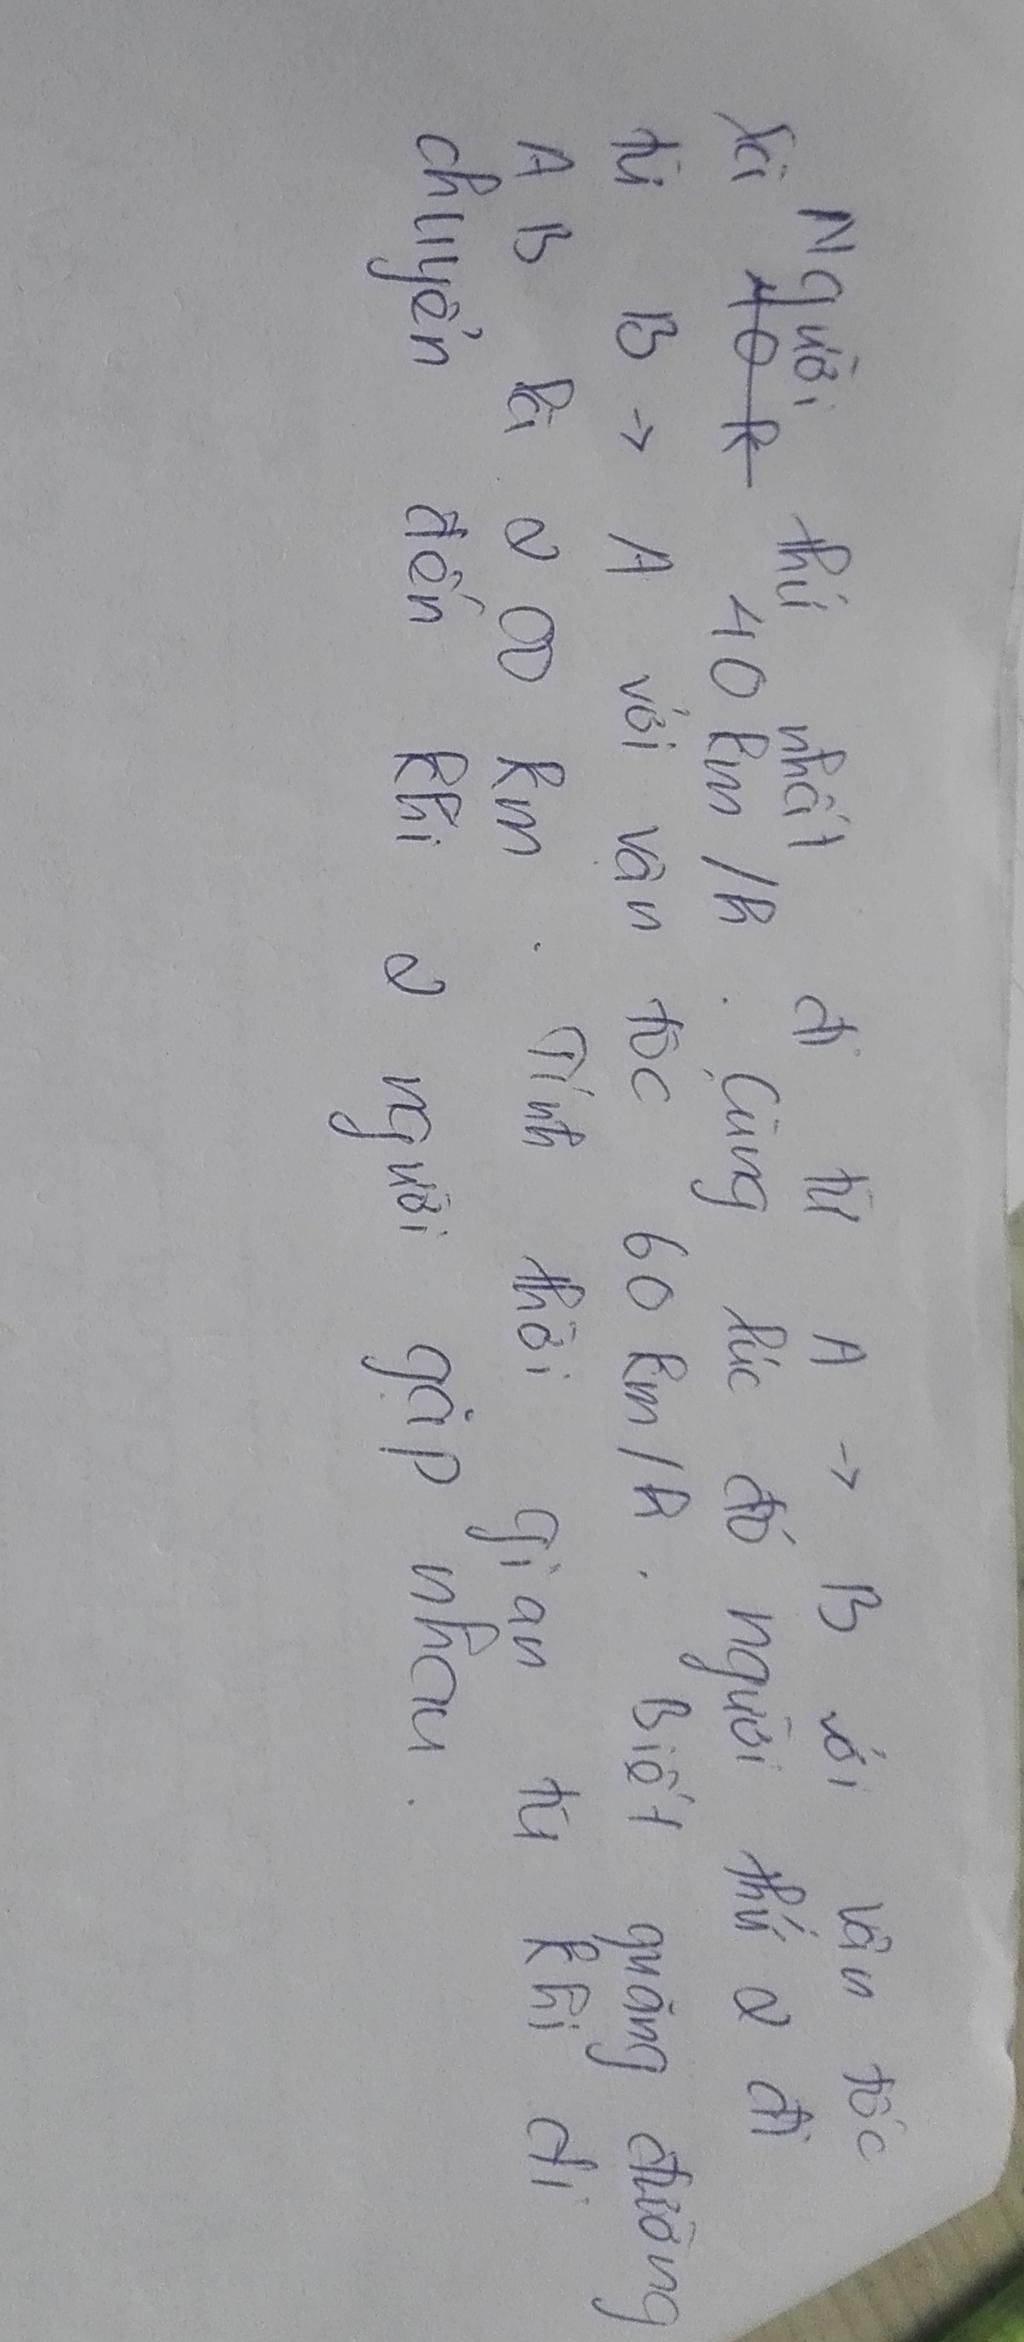 Người thứ nhất đi từ A → B với vân tốc
là 40 km/h. Cùng lúc đó người thứ 2 đi
từ B → A với vân tốc 60 km/h. Biết quãng đường
AB là 200 km. Tính thời gian từ khi di
chuyển đến khi 2 người gặp nhau.